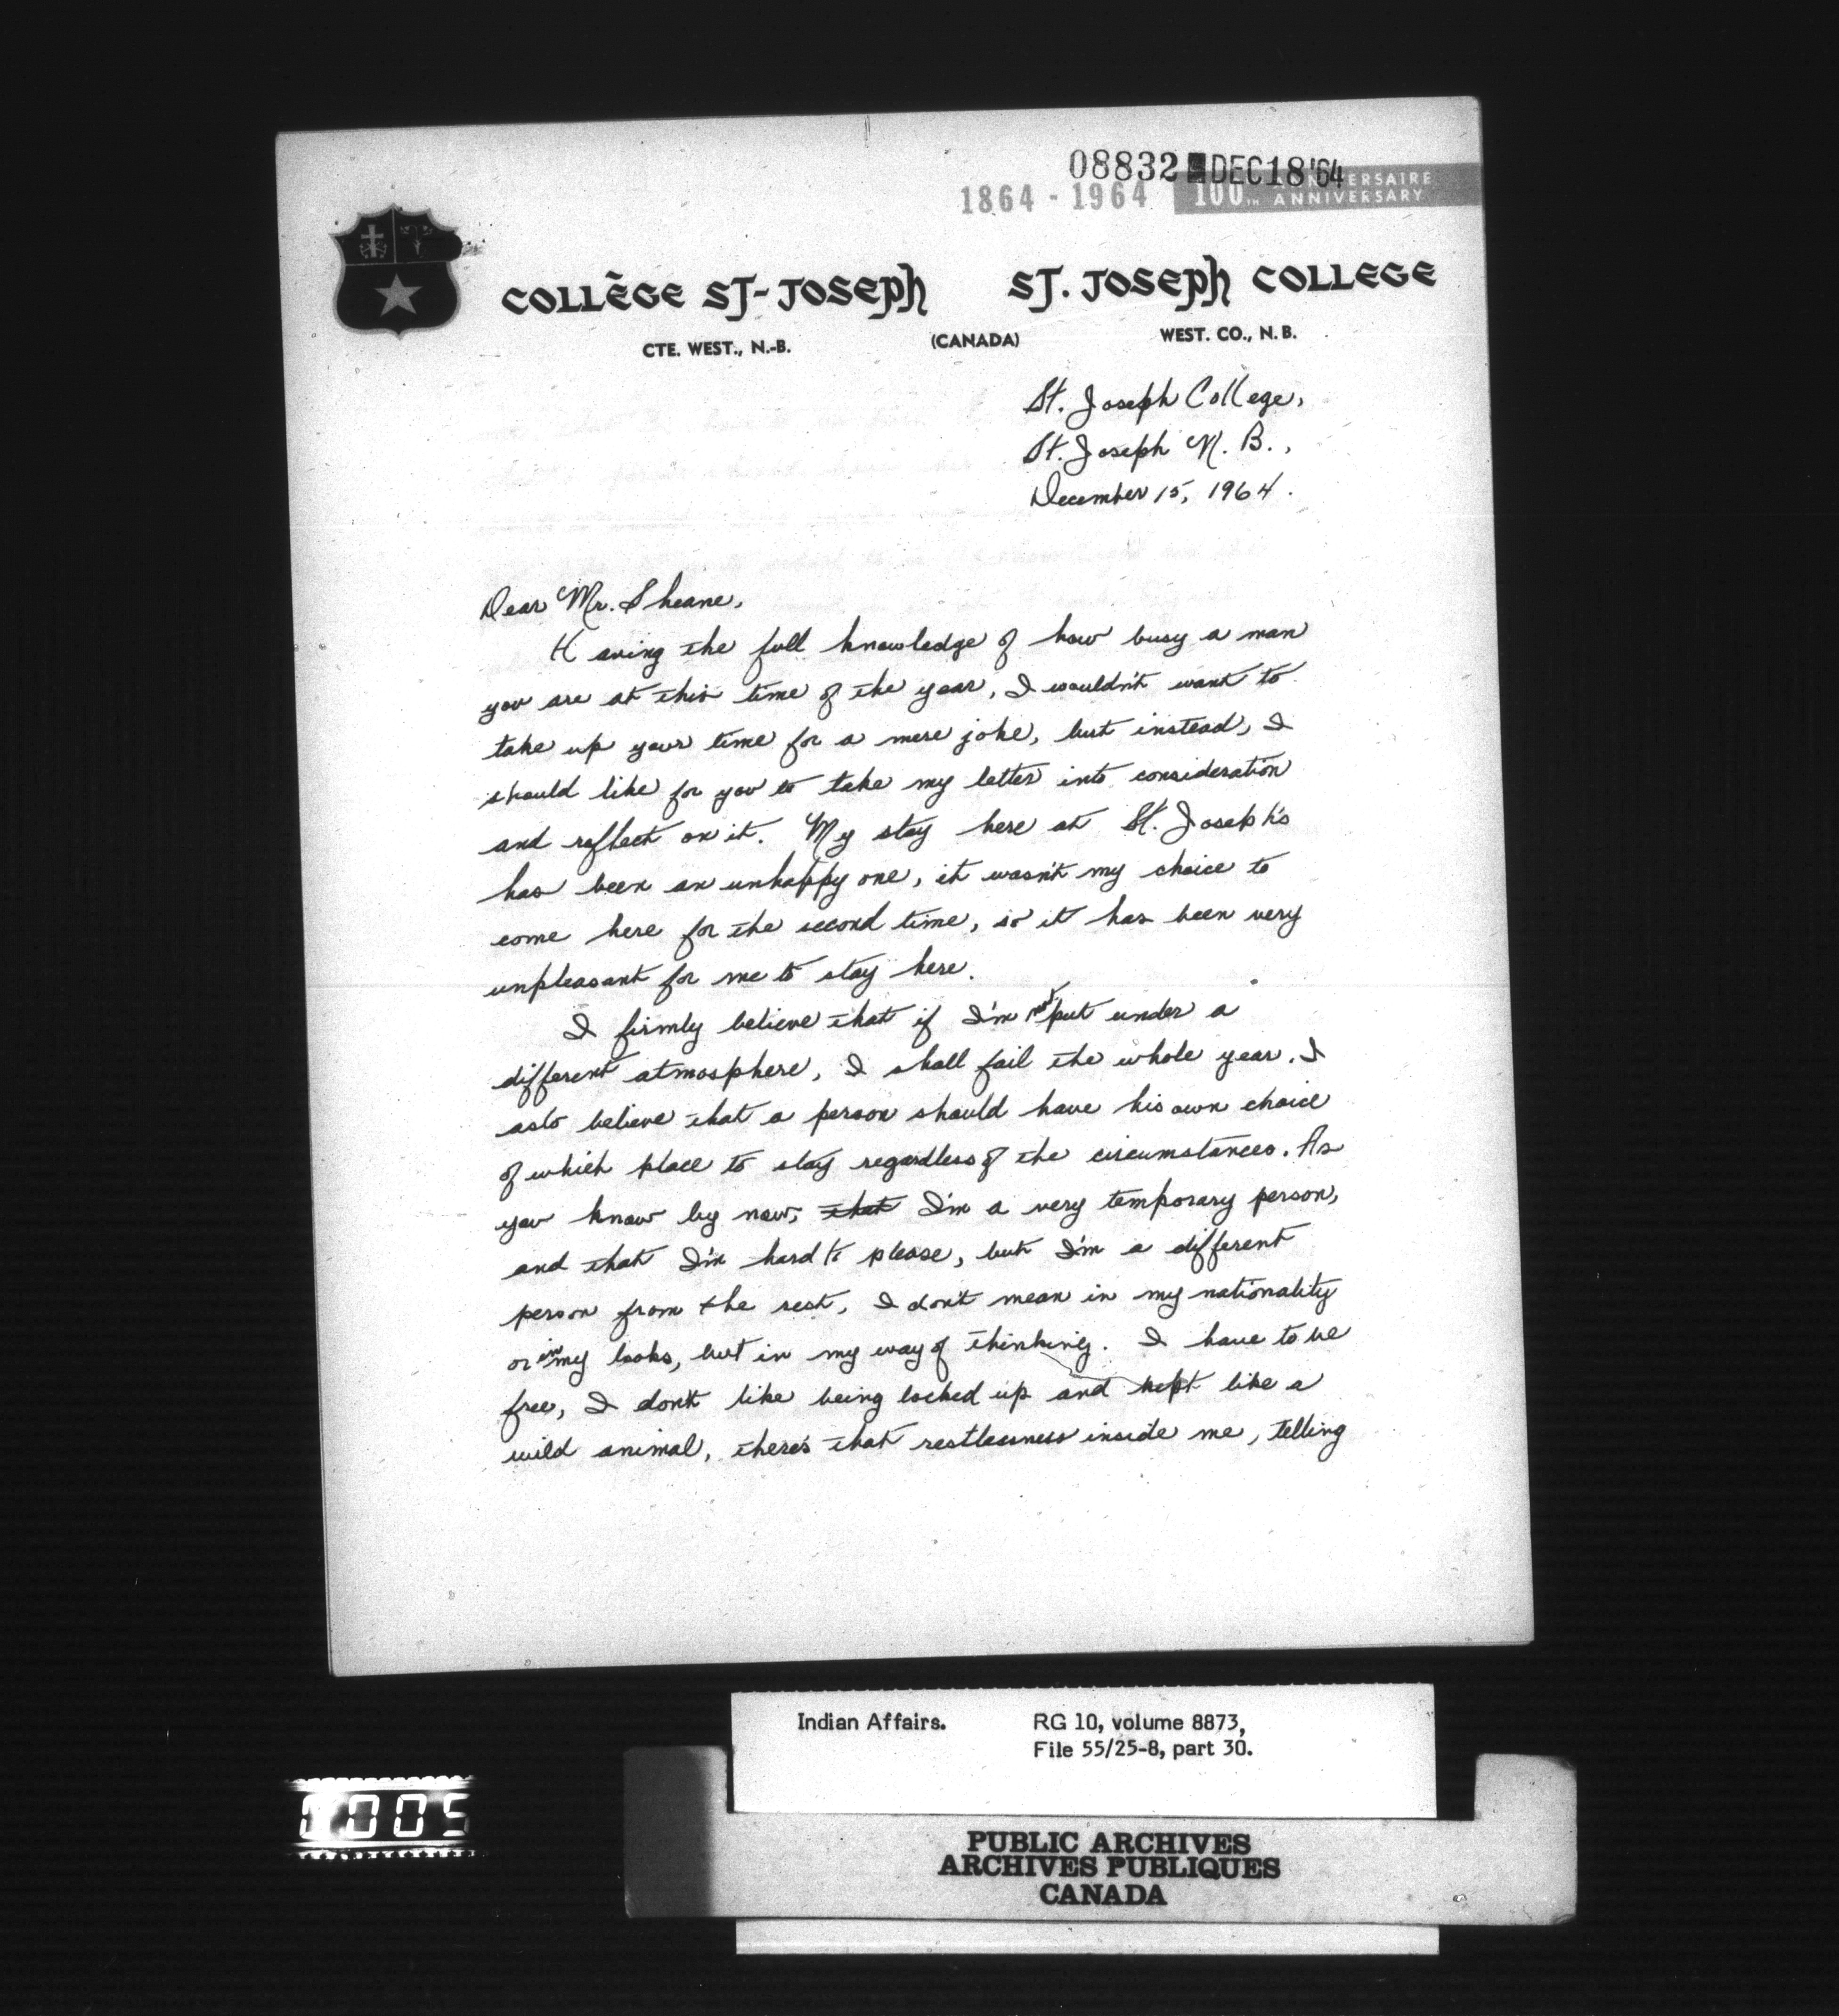 08832 DEC 18 '64
1864 - 1964 100TH ANNIVERSAIRE
ANNIVERSARY
COLLÈGE ST-JOSEPH ST. JOSEPH COLLEGE
CTE. WEST., N.-B. (CANADA) WEST. CO., N. B.
St. Joseph College,
St. Joseph N. B.,
December 15, 1964.
Dear Mr. Sheane,
Having the full knowledge of how busy a man
you are at this time of the year, I wouldn't want to
take up your time for a mere joke, but instead, I
should like for you to take my letter into consideration
and reflect on it. My stay here at St. Joseph's
has been an unhappy one, it wasn't my choice to
come here for the second time, so it has been very
unpleasant for me to stay here.
I firmly believe that if I'm not put under a
different atmosphere, I shall fail the whole year. I
aslo believe that a person should have his own choice
of which place to stay regardless of the circumstances. As
you know by now, that I'm a very temporary person,
and that I'm hard to please, but I'm a different
person from the rest, I don't mean in my nationality
or in my looks, but in my way of thinking. I have to be
free, I don't like being locked up and kept like a
wild animal, there's that restlessness inside me, telling
Indian Affairs. RG 10, volume 8873,
File 55/25-8, part 30.
0005
PUBLIC ARCHIVES
ARCHIVES PUBLIQUES
CANADA